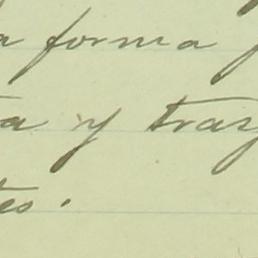 a forma
a y traz
tes.